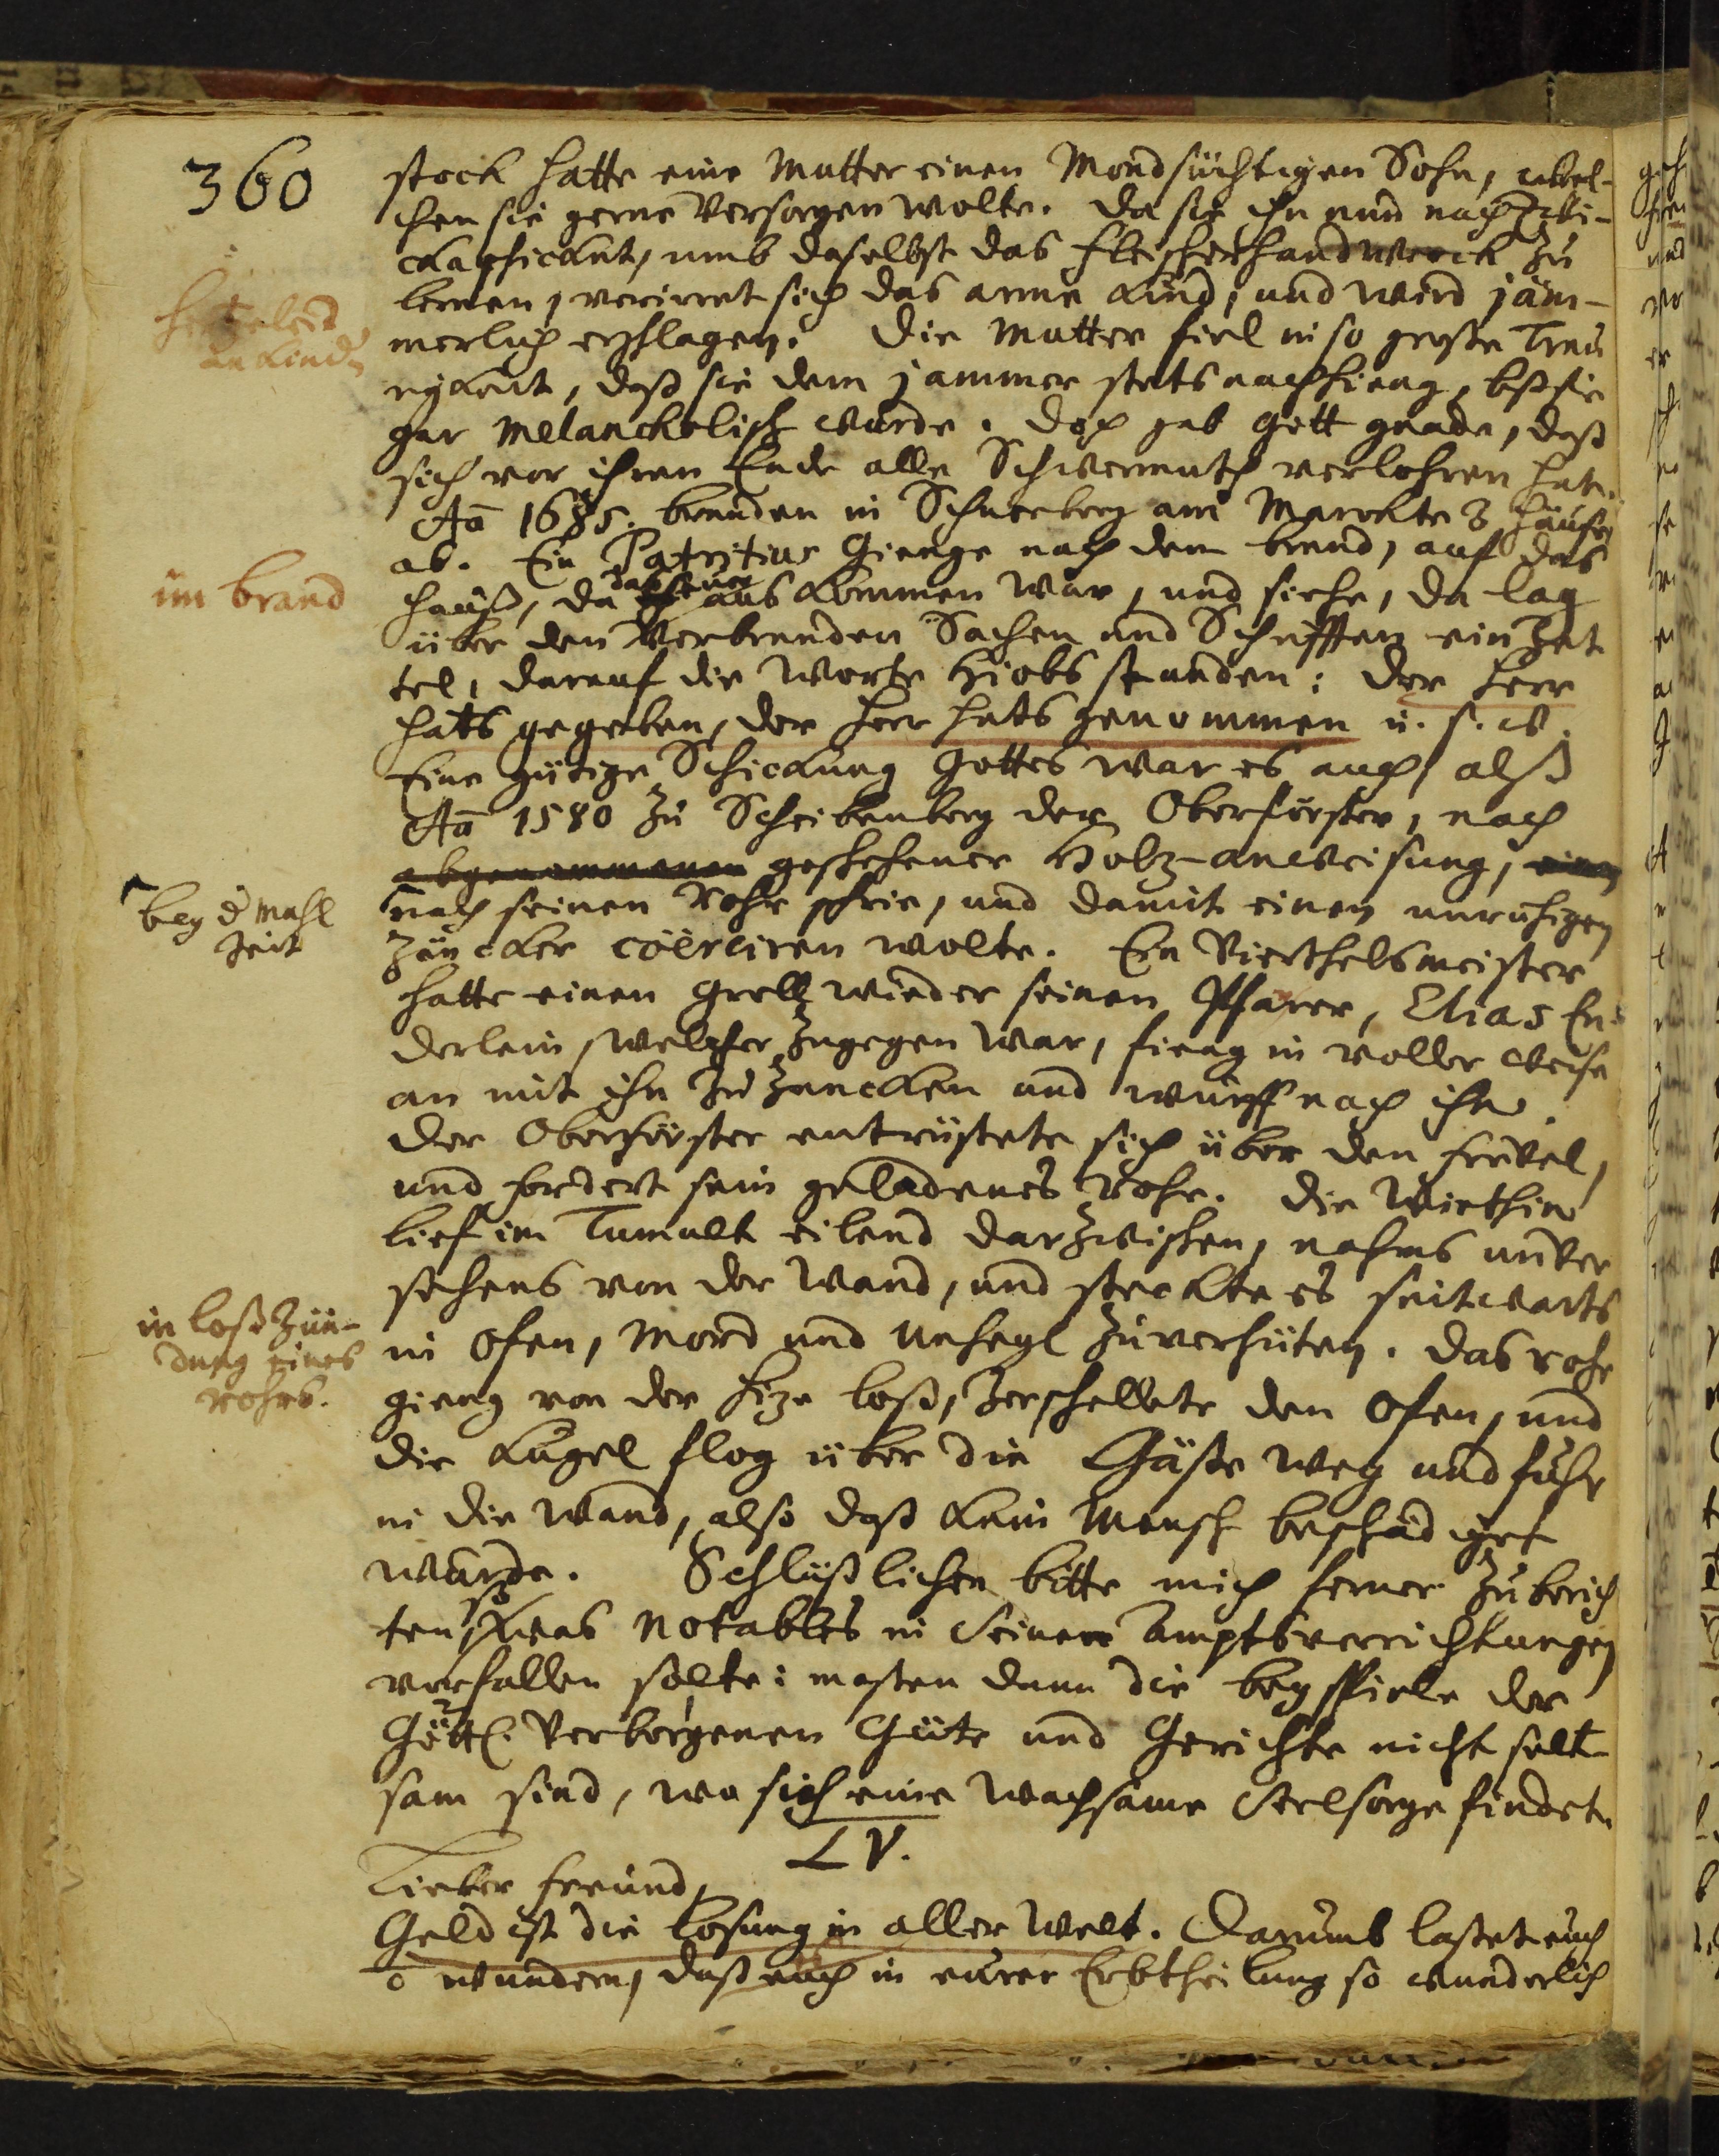 360
stock hatte eine Mutter einen Mondsüchtigen Sohn, wel-
chen sie gerne Versorgen wolte. Da sie ihn nun nach Zwi-
ckau schickent, umb daselbst das Fleischerhandwerck zu
lernen, verirret sich das arme Kind, und wird jäm-
merlich erschlagen. Die Mutter fiel in so große Trau
rigkeit, daß sie dem jammer stets nachhieng, biß sie
gar Melancholisch wurde. Doch gab Gott gnade, daß
sich vor ihren Ende alle Schwermuth verlohren hat.
Aō 1685. branden in Schneeberg am Marckte 3 Häuser
ab. Ein Patritius Gienge nach dem brand, auf das
Hauß, da das feuer aus kommen war, und siehe, da lag
über den Verbranden Sachen und Schrifften ein Zet
tel, darauf die Worte Hiobs stunden: Der Herr
hats gegeben, der Herr hats genommen u. s. w.
Eine gütige Schickung Gottes war es auch, alß
Aō 1580 zu Scheibenberg der Oberförster, nach
abgenommenen geschehener Holz-anweisung,
nach seinen Rohr schrie, und damit einen unruhigen
Zäncker coërciren wolte. Ein Vierthelsmeister
hatte einen Groll wieder seinen Pfarrer, Elias En-
derlein, welcher zugegen war, fieng in voller weise
an mit ihn zu zancken und wurff nach ihn.
Der Oberförster entrüstete sich über den frevel,
und fordert sein geladenes Rohr. Die Wirthin
lief im Tumult eilend darzwischen, nahms unver
sehens von der Wand, und steckte es seitwarts
in Ofen, Mord und Unheyl zuverhüten. Das rohr
gieng von der Hize loß, zerschellete den Ofen, und
die Kugel flog über die Gäste weg und fuhr
in die Wand, also daß kein Mensch beschädiget
wurde. Schlüßlichen bitte mich ferner zu berich
ten, so was Notables in Seinen Amptsverrichtungen
vorfallen solte: maßen dann die beyspiele der
Göttl. Verborgenen Güte und Gerichte nicht selt
sam sind, wo sich eine wachsame Seelsorge findet.
LV.
Lieber Freund,
Geld ist die losung in aller Welt. Darumb laßet euch
ō wundern, daß euch in eurer Erbtheilung so wunderlich
Herzeleid
an Kindn
im brand
bey d Mahl
zeit
in loß Zün-
dung eines
rohrs.